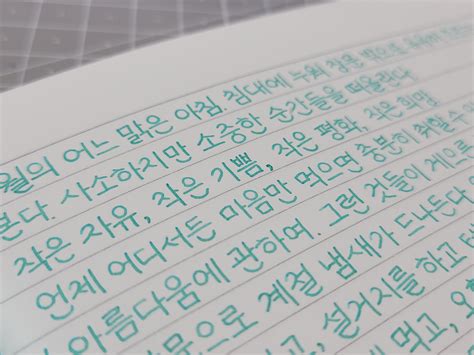 월의 어느 맑은 아침. 침대에 누워 창문 밖으로
본다. 사소하지만 소중한 순간들을 떠올린다
작은 자유, 작은 기쁨, 작은 평화, 작은 희망
언제 어디서든 마음만 먹으면 충분히 취할 수
아름다움에 관하여. 그런 것들이 게으르
문으로 계절 냄새가 드나든다
고, 설거지를 하고
먹고,